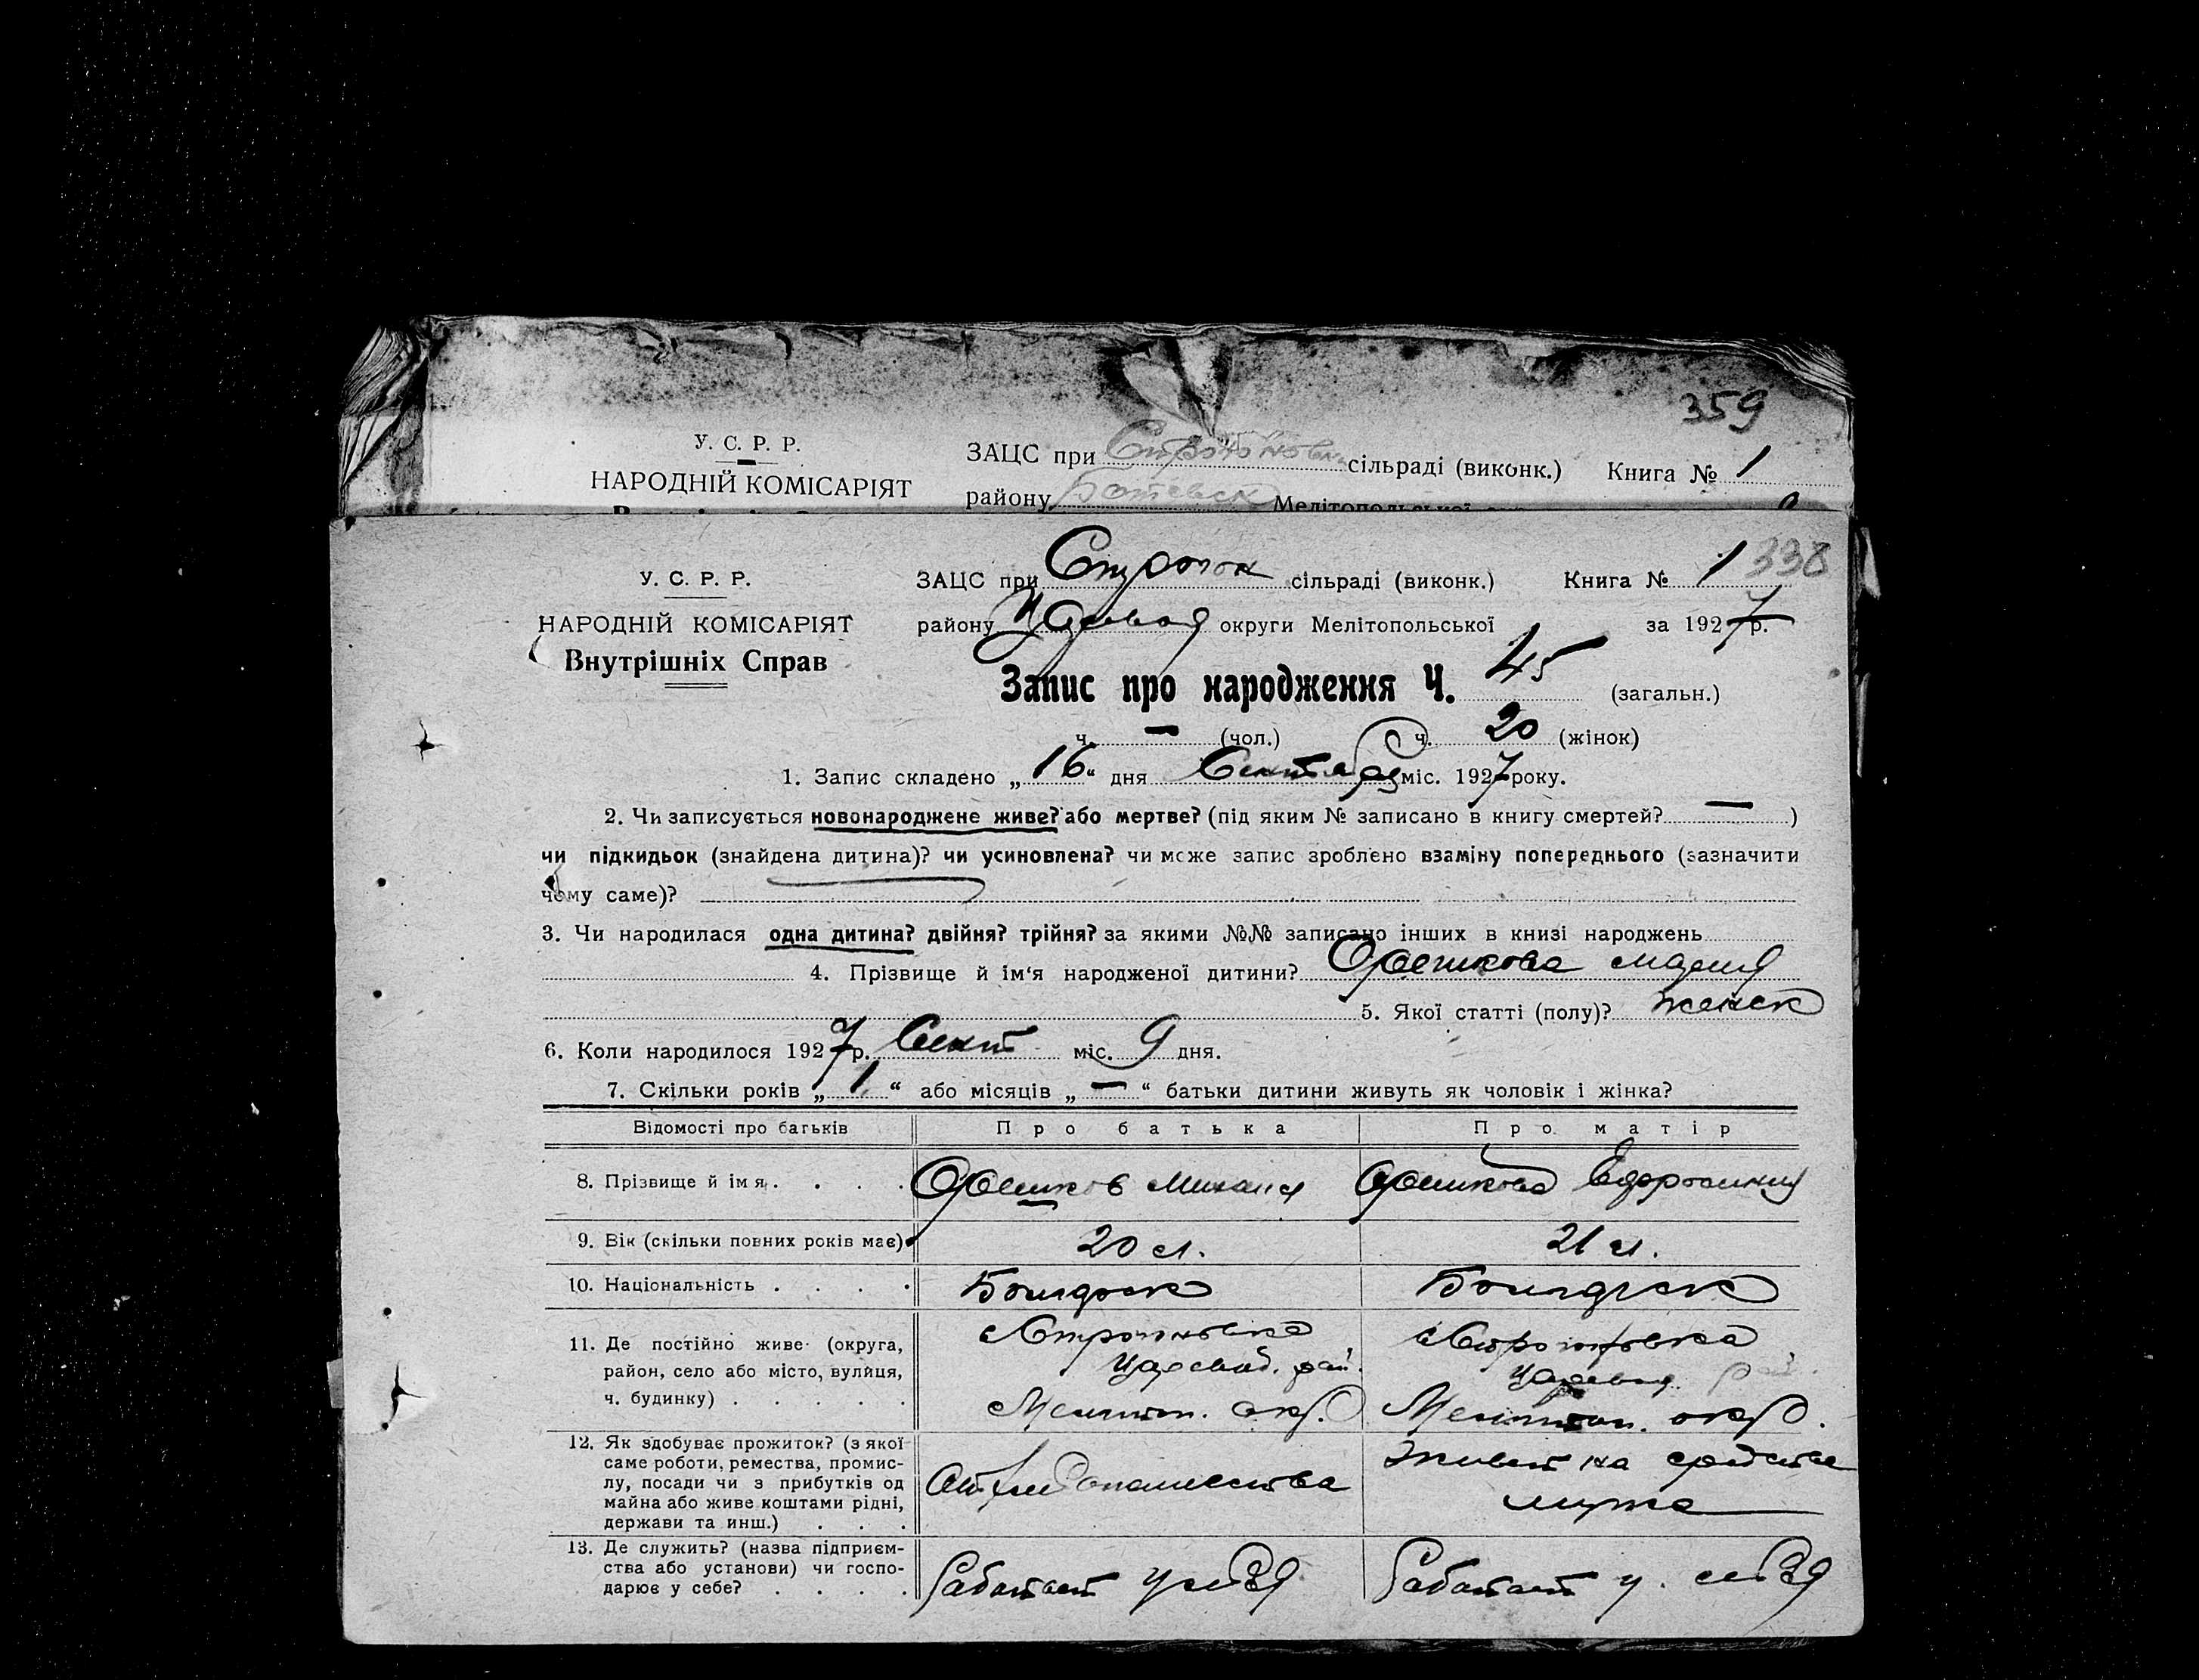 359
У. С. Р. Р.
ЗАЦС при сільраді (виконк.) Книга № 1
НАРОДНІЙ КОМІСАРІЯТ
району Ботевск Мелітопольської
338
У. С. Р. Р.
ЗАЦС при Строгон сільраді (виконк.) Книга № 1
НАРОДНІЙ КОМІСАРІЯТ
району Царевод округи Мелітопольської за 1927 р.
Внутрішніх Справ
Запис про народження Ч. 45 (загальн.)
ч. — (чол.) ч. 20 (жінок)
1. Запис складено „16“ дня Сентября міс. 1927 року.
2. Чи записується новонароджене живе? або мертве? (під яким № записано в книгу смертей? — )
чи підкидьок (знайдена дитина)? чи усиновлена? чи може запис зроблено взаміну попереднього (зазначити
чому саме)?
3. Чи народилася одна дитина? двійня? трійня? за якими №№ записано інших в книзі народжень
4. Прізвище й ім‘я народженої дитини? Орешкова Мария
5. Якої статті (полу)? женск
6. Коли народилося 1927 р. Сент міс. 9 дня.
7. Скільки років „ 1 “ або місяців „ — “ батьки дитини живуть як чоловік і жінка?
Відомості про батьків Про батька Про матір
8. Прізвище й імя . . . . Орешков Михаил Орешкова
9. Вік (скільки повних років має) 20 л. 21 л.
10. Національність . . . . Болгарск Болгарск
11. Де постійно живе (округа,
район, село або місто, вулиця,
ч. будинку) . . . . .
с Строгоновка
Царевод. рай.
Мелитоп. окр.
с Строгоновка
Царевод. рай.
Мелитоп. окр.
12. Як здобуває прожиток? (з якої
саме роботи, ремества, промис-
лу, посади чи з прибутків од
майна або живе коштами рідні,
держави та инш.) . . .
От хлебопашества
Живет на средства
мужа
13. Де служить? (назва підприєм-
ства або установи) чи госпо-
дарює у себе? . . . .
Работает у себя
Работает у себя